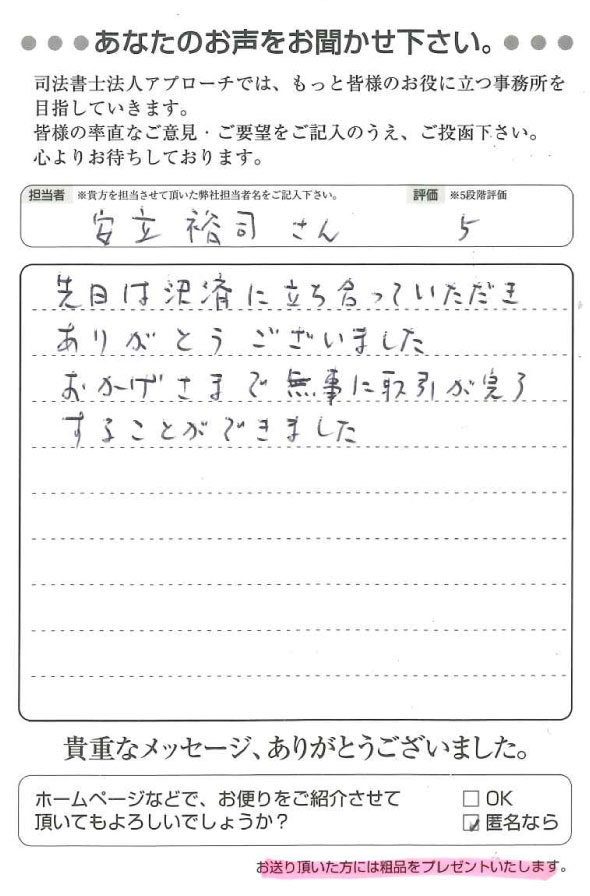 ●●●あなたのお声をお聞かせ下さい。●●●
司法書士法人アプローチでは、もっと皆様のお役に立つ事務所を
目指していきます。
皆様の率直なご意見・ご要望をご記入のうえ、ご投函下さい。
心よりお待ちしております。
担当者 ※貴方を担当させて頂いた弊社担当者名をご記入下さい。 評価 ※5段階評価
安立 裕司 さん 5
先日は決済に立ち合っていただき
ありがとうございました
おかげさまで無事に取引が完了
することができました
貴重なメッセージ、ありがとうございました。
ホームページなどで、お便りをご紹介させて
頂いてもよろしいでしょうか？
□ OK
☑ 匿名なら
お送り頂いた方には粗品をプレゼントいたします。